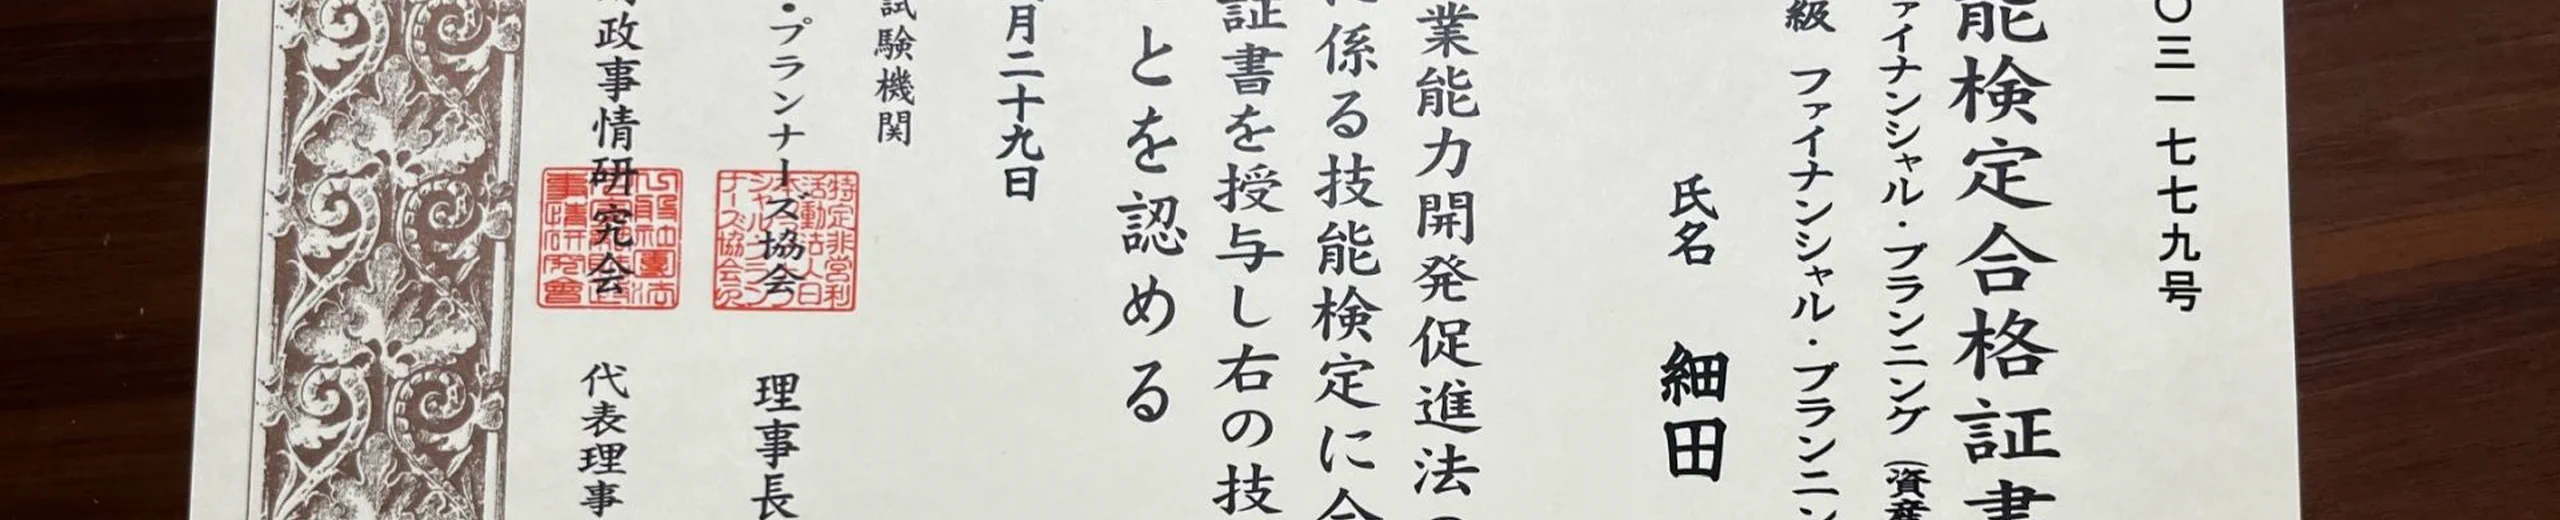 〇三一七七九号
能検定合格証書
ァイナンシャル・プランニング(資産
級 ファイナンシャル・プランニン
氏名 細田
業能力開発促進法の
に係る技能検定に合
証書を授与し右の技
とを認める
月二十九日
試験機関
・プランナーズ協会 理事長
財政事情研究会 代表理事